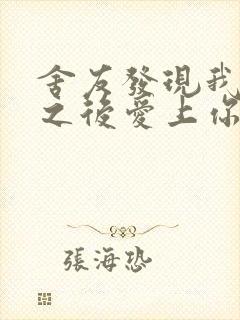 舍友發現我
之後愛上你
張海恐